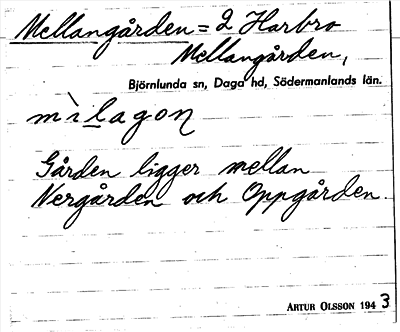 Mellangården = 2 Harbro
Mellangården,
Björnlunda sn, Daga hd, Södermanlands län.
mìlagon
Gården ligger mellan
Nergården och Oppgården.
ARTUR OLSSON 1943